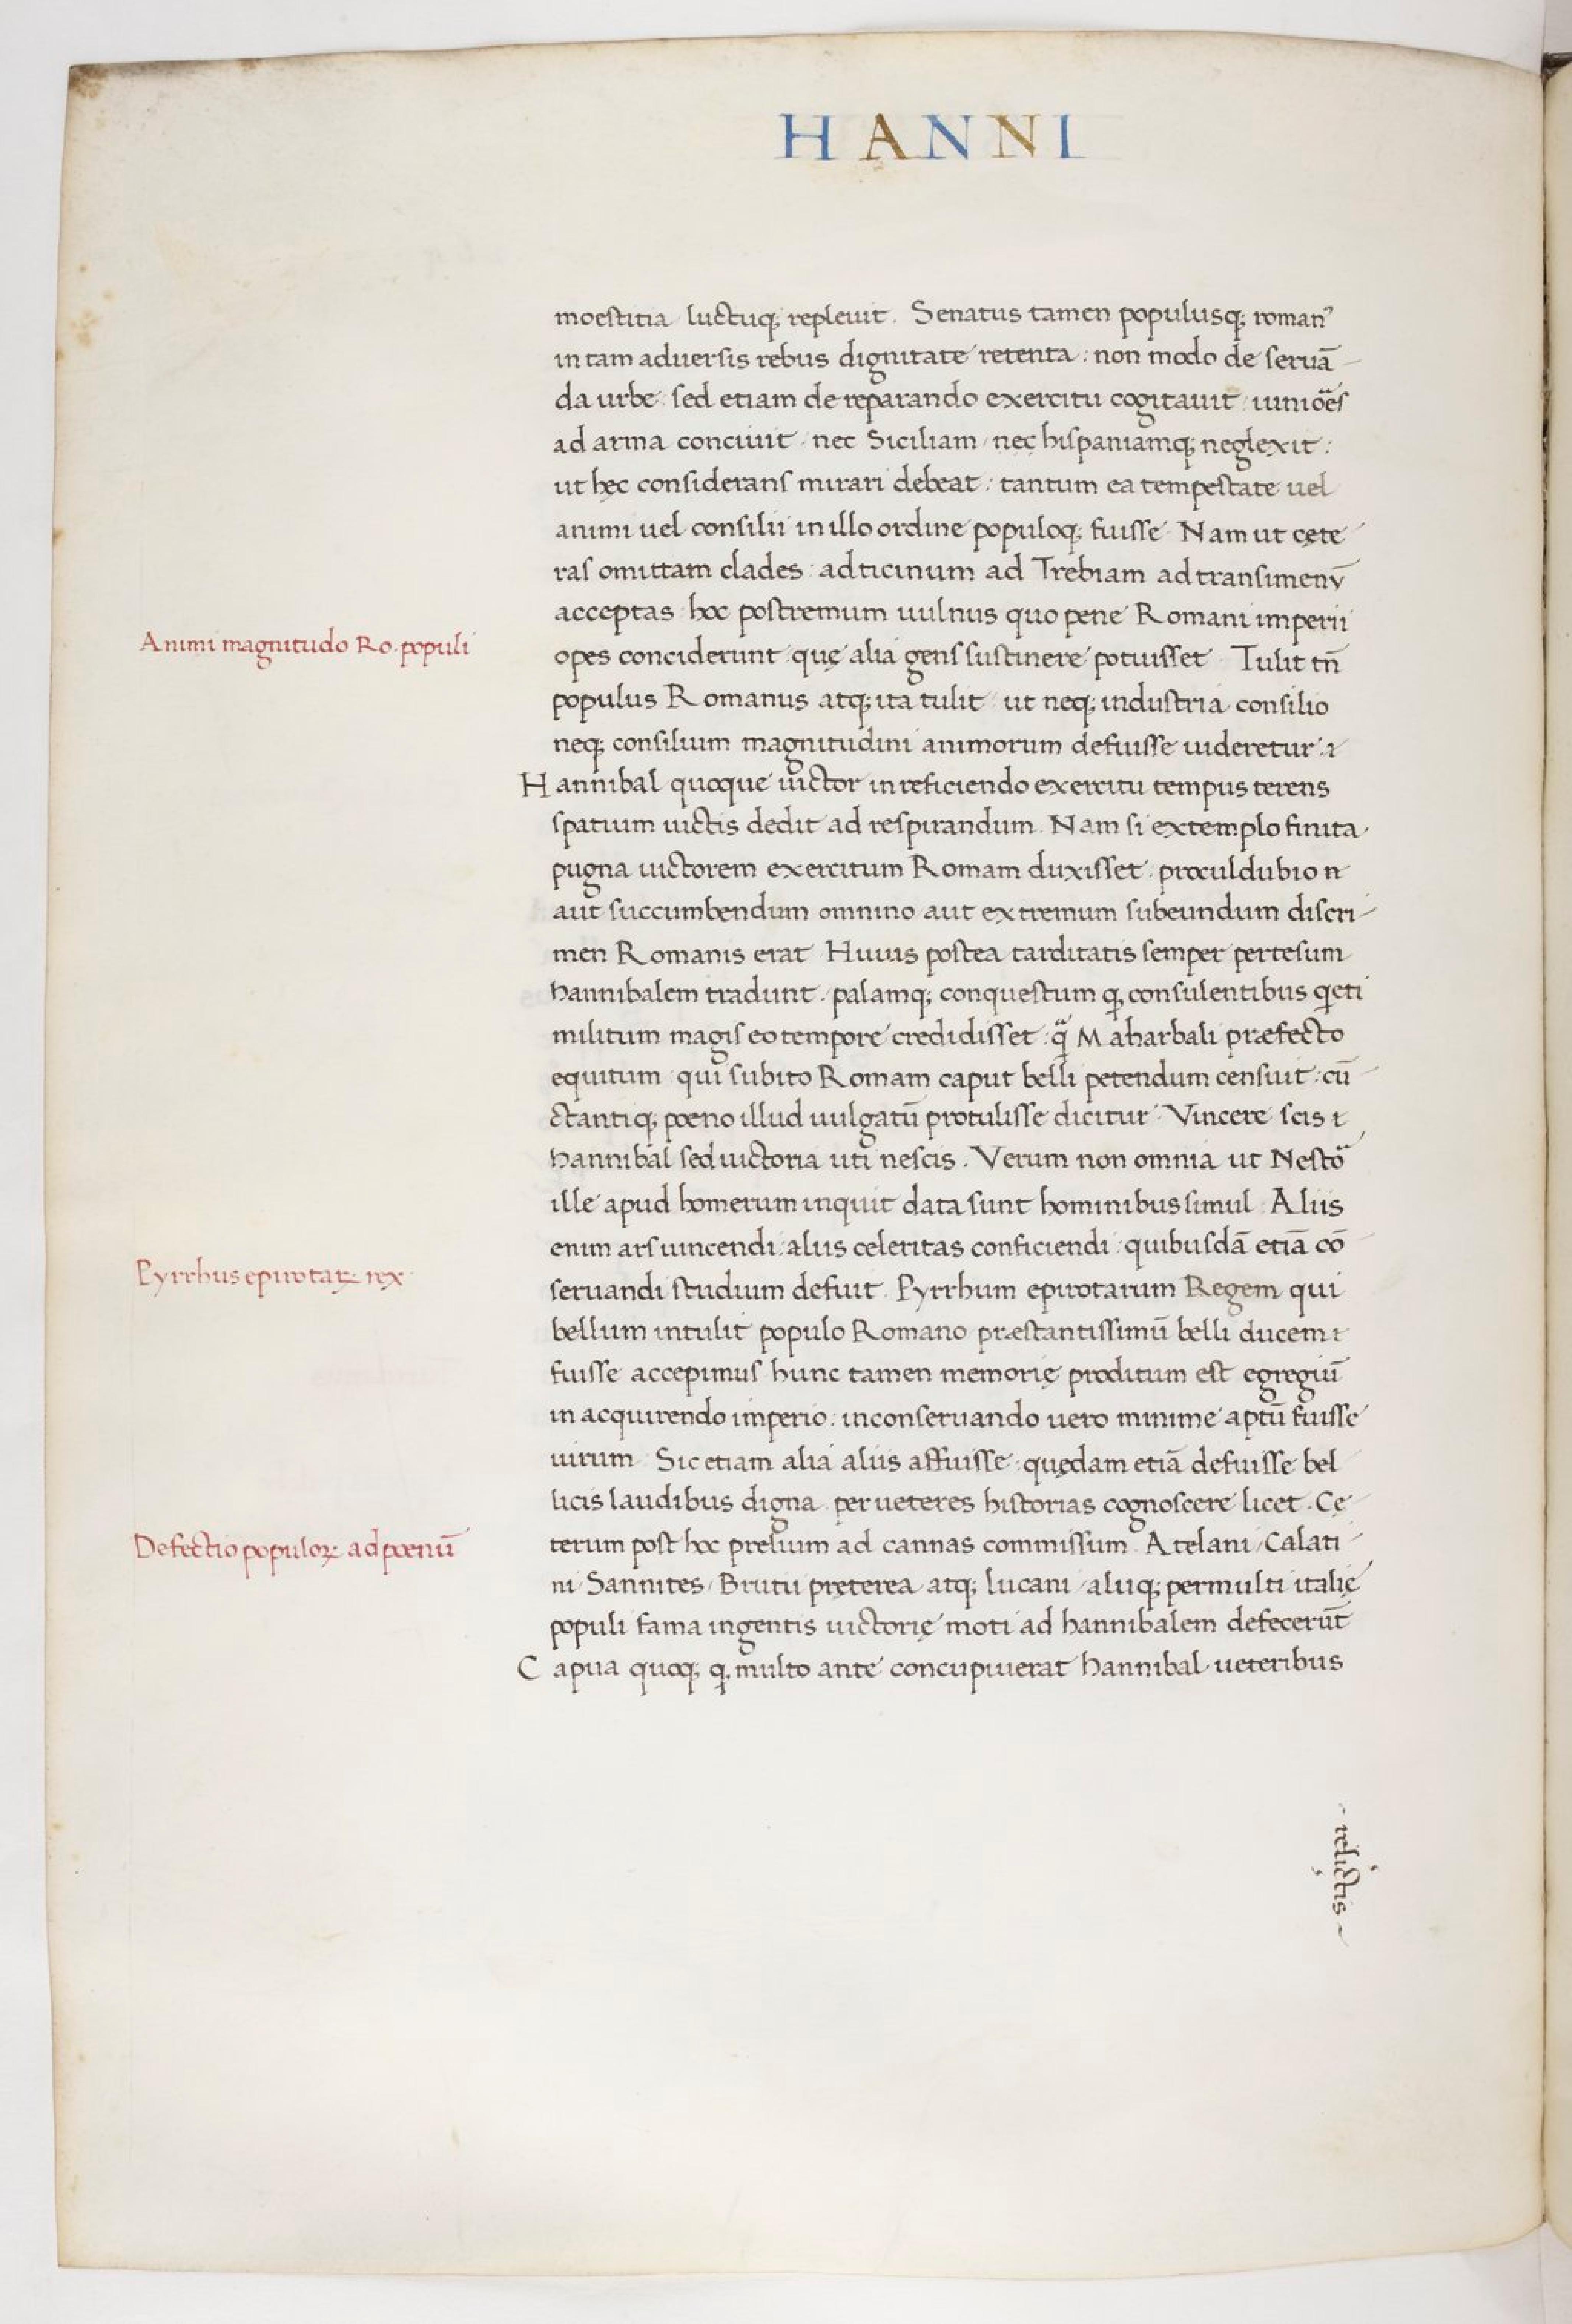 HANNI
moestitia luctuq; repleuit. Senatus tamen populusq; romanꝰ
in tam aduersis rebus dignitate retenta: non modo de seruā-
da urbe sed etiam de reparando exercitu cogitauit iuniōes
ad arma conciuit nec Siciliam nec hispaniamq; neglexit:
ut hęc considerans mirari debeat: tantum ea tempestate uel
animi uel consilii in illo ordine populoq; fuisse Nam ut cęte-
ras omittam clades: ad ticinum ad Trebiam ad transimenū
acceptas hoc postremum uulnus quo pene Romani imperii
Animi magnitudo Ro. populi
opes conciderunt quę alia gens sustinere potuisset Tulit tn̄
populus Romanus atq; ita tulit ut neq; industria consilio
neq; consilium magnitudini animorum defuisse uideretur
Hannibal quoque uictor in reficiendo exercitu tempus terens
spatium uictis dedit ad respirandum. Nam si extemplo finita
pugna uictorem exercitum Romam duxisset. proculdubio
aut succumbendum omnino aut extremum subeundum discri-
men Romanis erat Huius postea tarditatis semper pertesum
hannibalem tradunt. palamq; conquestum ꝙ consulentibus quieti
militum magis eo tempore credidisset: qᷓ Maharbali præfecto
equitum qui subito Romam caput belli petendum censuit: cū-
ctantiq; poeno illud uulgatū protulisse dicitur Vincere scis
hannibal sed uictoria uti nescis. Verum non omnia ut Nestoᷓ
ille apud homerum inquit data sunt hominibus simul Aliis
enim ars uincendi: aliis celeritas conficiendi: quibusdā etiā cō-
Pyrrhus epirotaꝝ rex
seruandi studium defuit. Pyrrhum epirotarum Regem qui
bellum intulit populo Romano præstantissimū belli ducem
fuisse accepimus hunc tamen memorię proditum est egregiū
in acquirendo imperio: in conseruando uero minime aptū fuisse
uirum Sic etiam alia aliis affuisse: quędam etiā defuisse bel
licis laudibus digna per ueteres historias cognoscere licet. Cę-
Defectio populoꝝ ad poenū
terum post hoc prelium ad cannas commissum Atelani/Calati-
ni/Samnites/Brutii pręterea atq; lucani/aliiq; permulti italię
populi fama ingentis uictorię moti ad hannibalem defecerūt
Capua quoq; ꝙ multo ante concupiuerat hannibal ueteribus
- relictis -